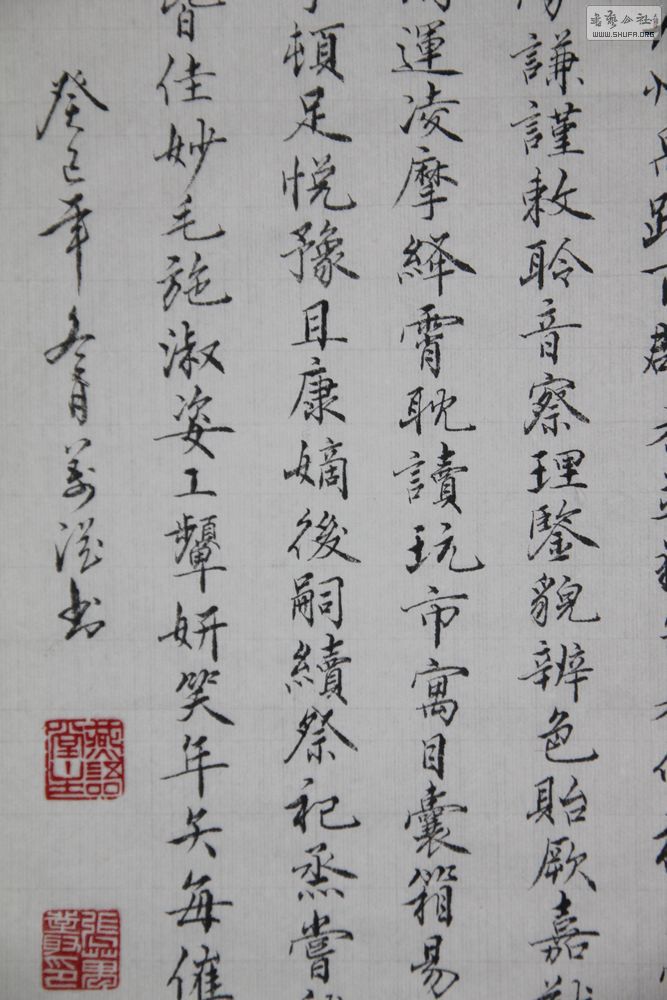 謙謹敕聆音察理鑒貌辨色貽厥嘉
運凌摩絳霄耽讀玩市寓目囊箱易
頓足悅豫且康嫡後嗣續祭祀烝嘗
皆佳妙毛施淑姿工顰妍笑年矢每催
癸巳年冬月
燕語堂主
書藝公社
WWW.SHUFA.ORG